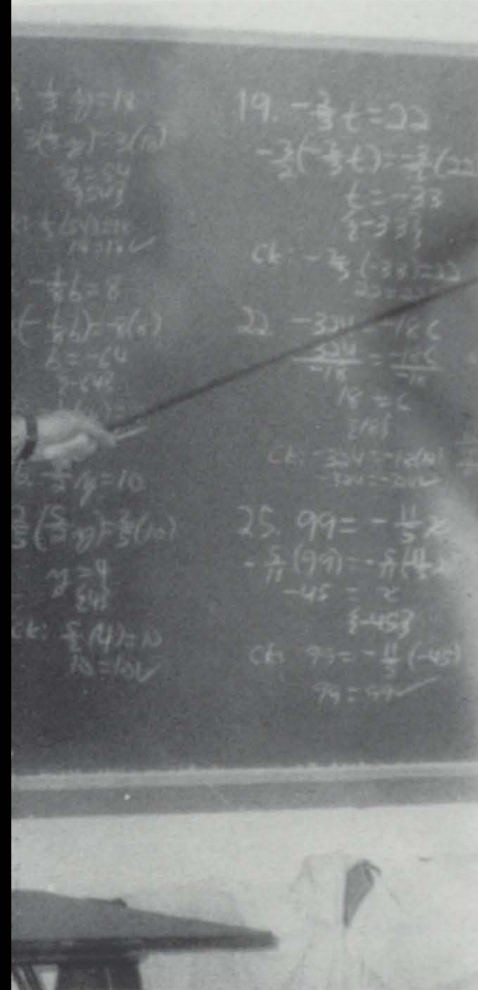 1/3 y = 18
3(1/3 y) = 3(18)
y = 54
-1/8 b = 8
b = -64
5/2 y = 10
2/5 (5/2 y) = 2/5 (10)
y = 4
{4}
ck: 5/2 (4) = 10
10 = 10 ✓
19. -2/3 t = 22
-3/2 (-2/3 t) = -3/2 (22
t = -33
{-33}
ck: -2/3 (-33) = 22
22 = 22
22. -324 = -18c
-324/-18 = -18c/-18
18 = c
{18}
ck: -324 = -18(18)
-324 = -324 ✓
25. 99 = -11/5 x
-5/11 (99) = -5/11 (-11/5 x
-45 = x
{-45}
ck: 99 = -11/5 (-45)
99 = 99 ✓